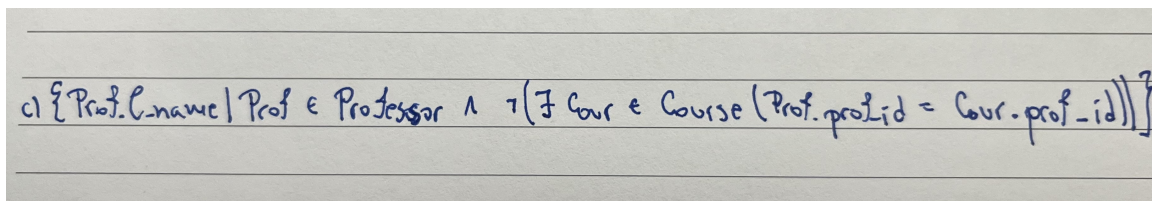 c) {Prof.l_name | Prof ∈ Professor ∧ ¬(∃ Cour ∈ Course (Prof.prof_id = Cour.prof_id))}